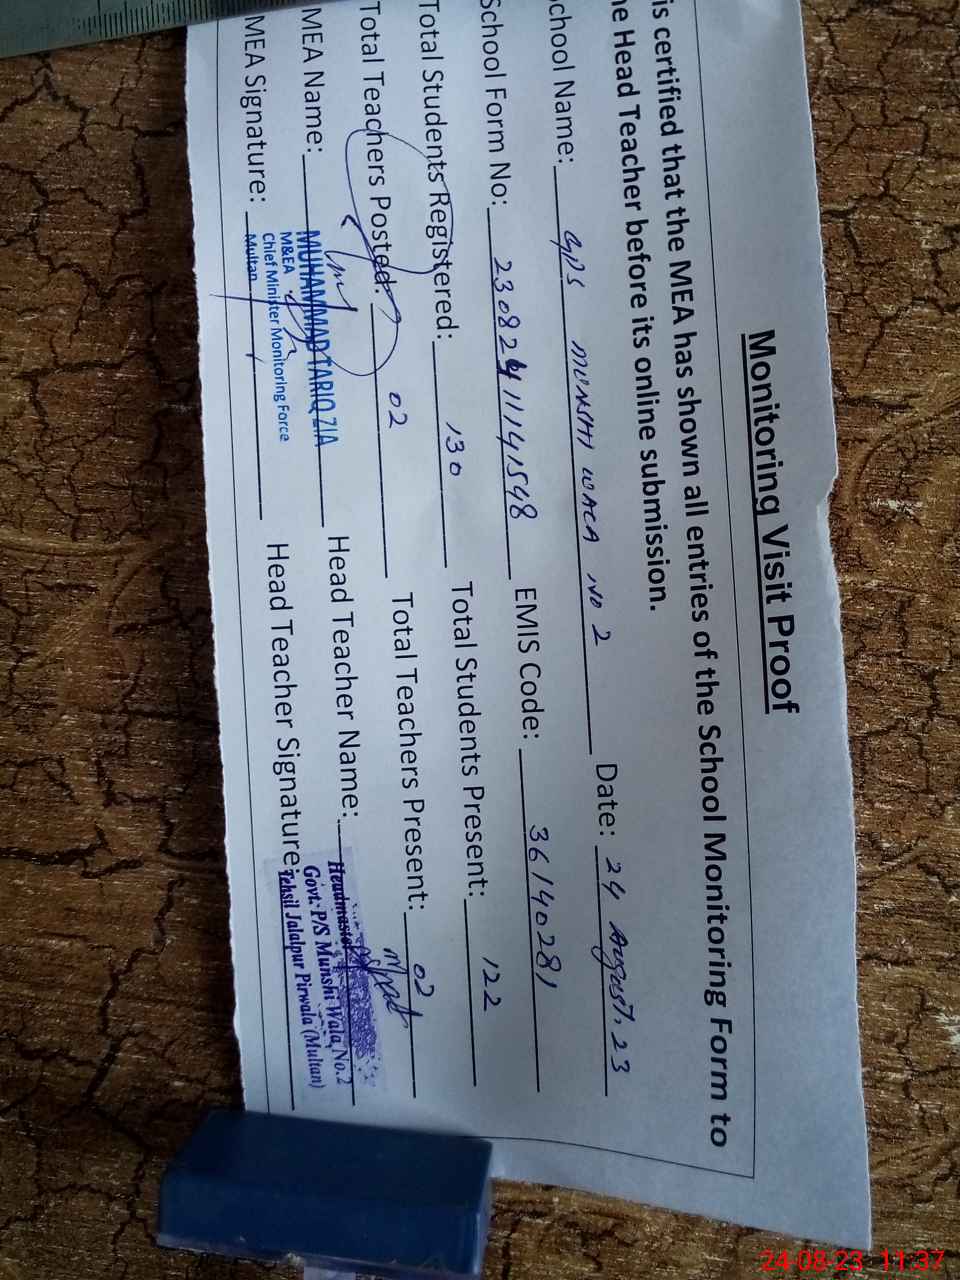 Monitoring Visit Proof
is certified that the MEA has shown all entries of the School Monitoring Form to
he Head Teacher before its online submission.
School Name: GPS MUNSHI WALA NO 2 Date: 24 August, 23
School Form No: 230824111141548 EMIS Code: 36140281
Total Students Registered: 130 Total Students Present: 122
Total Teachers Posted: 02 Total Teachers Present: 02
MEA Name: MUHAMMAD TARIQ ZIA Head Teacher Name:
M&EA
Chief Minister Monitoring Force
Multan
MEA Signature: Head Teacher Signature:
Headmaster
Govt: P/S Munshi Wala No.2
Tehsil Jalalpur Pirwala (Multan)
24-08-23 11:37